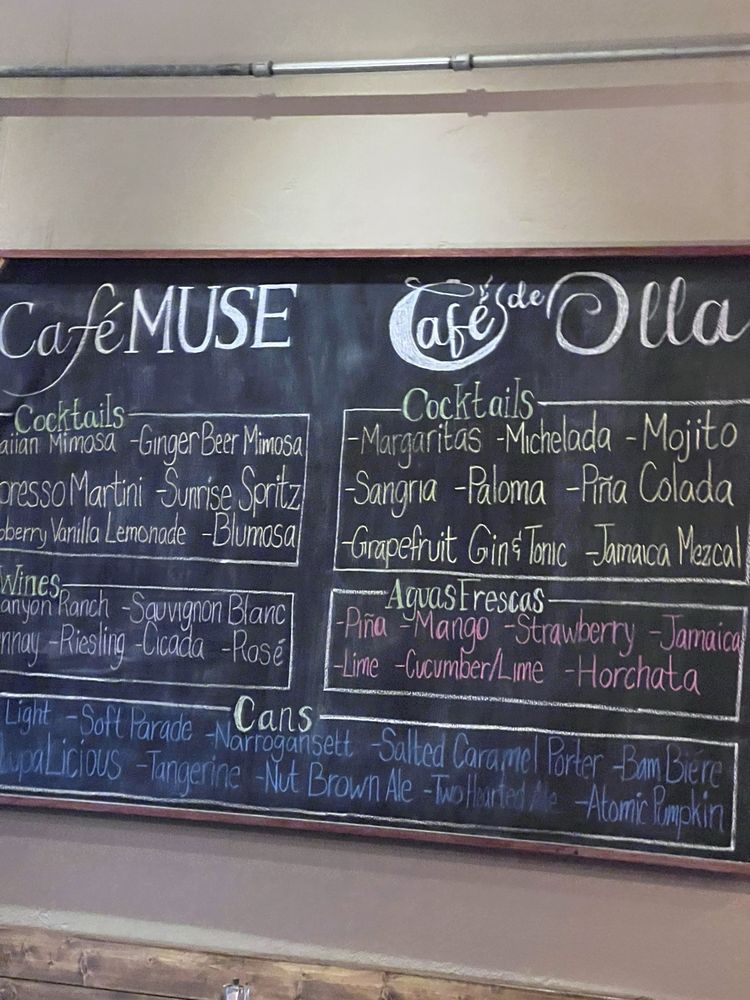 Café MUSE
Cocktails
Mimosa -Ginger Beer Mimosa
Martini -Sunrise Spritz
Vanilla Lemonade -Blumosa
Wines
Ranch -Sauvignon Blanc
-Riesling -Cicada -Rosé
Café de Olla
Cocktails
-Margaritas -Michelada -Mojito
-Sangria -Paloma -Piña Colada
-Grapefruit Gin & Tonic -Jamaica Mezcal
Aguas Frescas
-Piña -Mango -Strawberry -Jamaica
-Lime -Cucumber/Lime -Horchata
Cans
Light -Soft Parade -Narrogansett -Salted Caramel Porter -Bam Biére
LupaLicious -Tangerine -Nut Brown Ale -Two Hearted Ale -Atomic Pumpkin